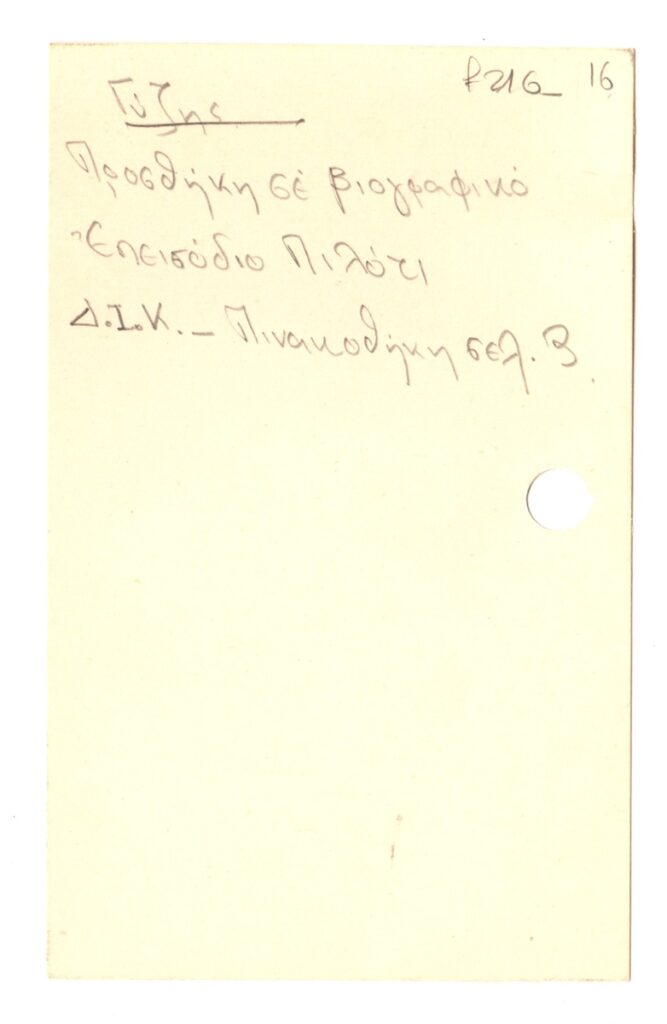 Γύζης
216_ 16
Προσθήκη σέ βιογραφικό
Ἐπεισόδιο Πιλότι
Δ.Ι.Κ. – Πινακοθήκη σελ. 3